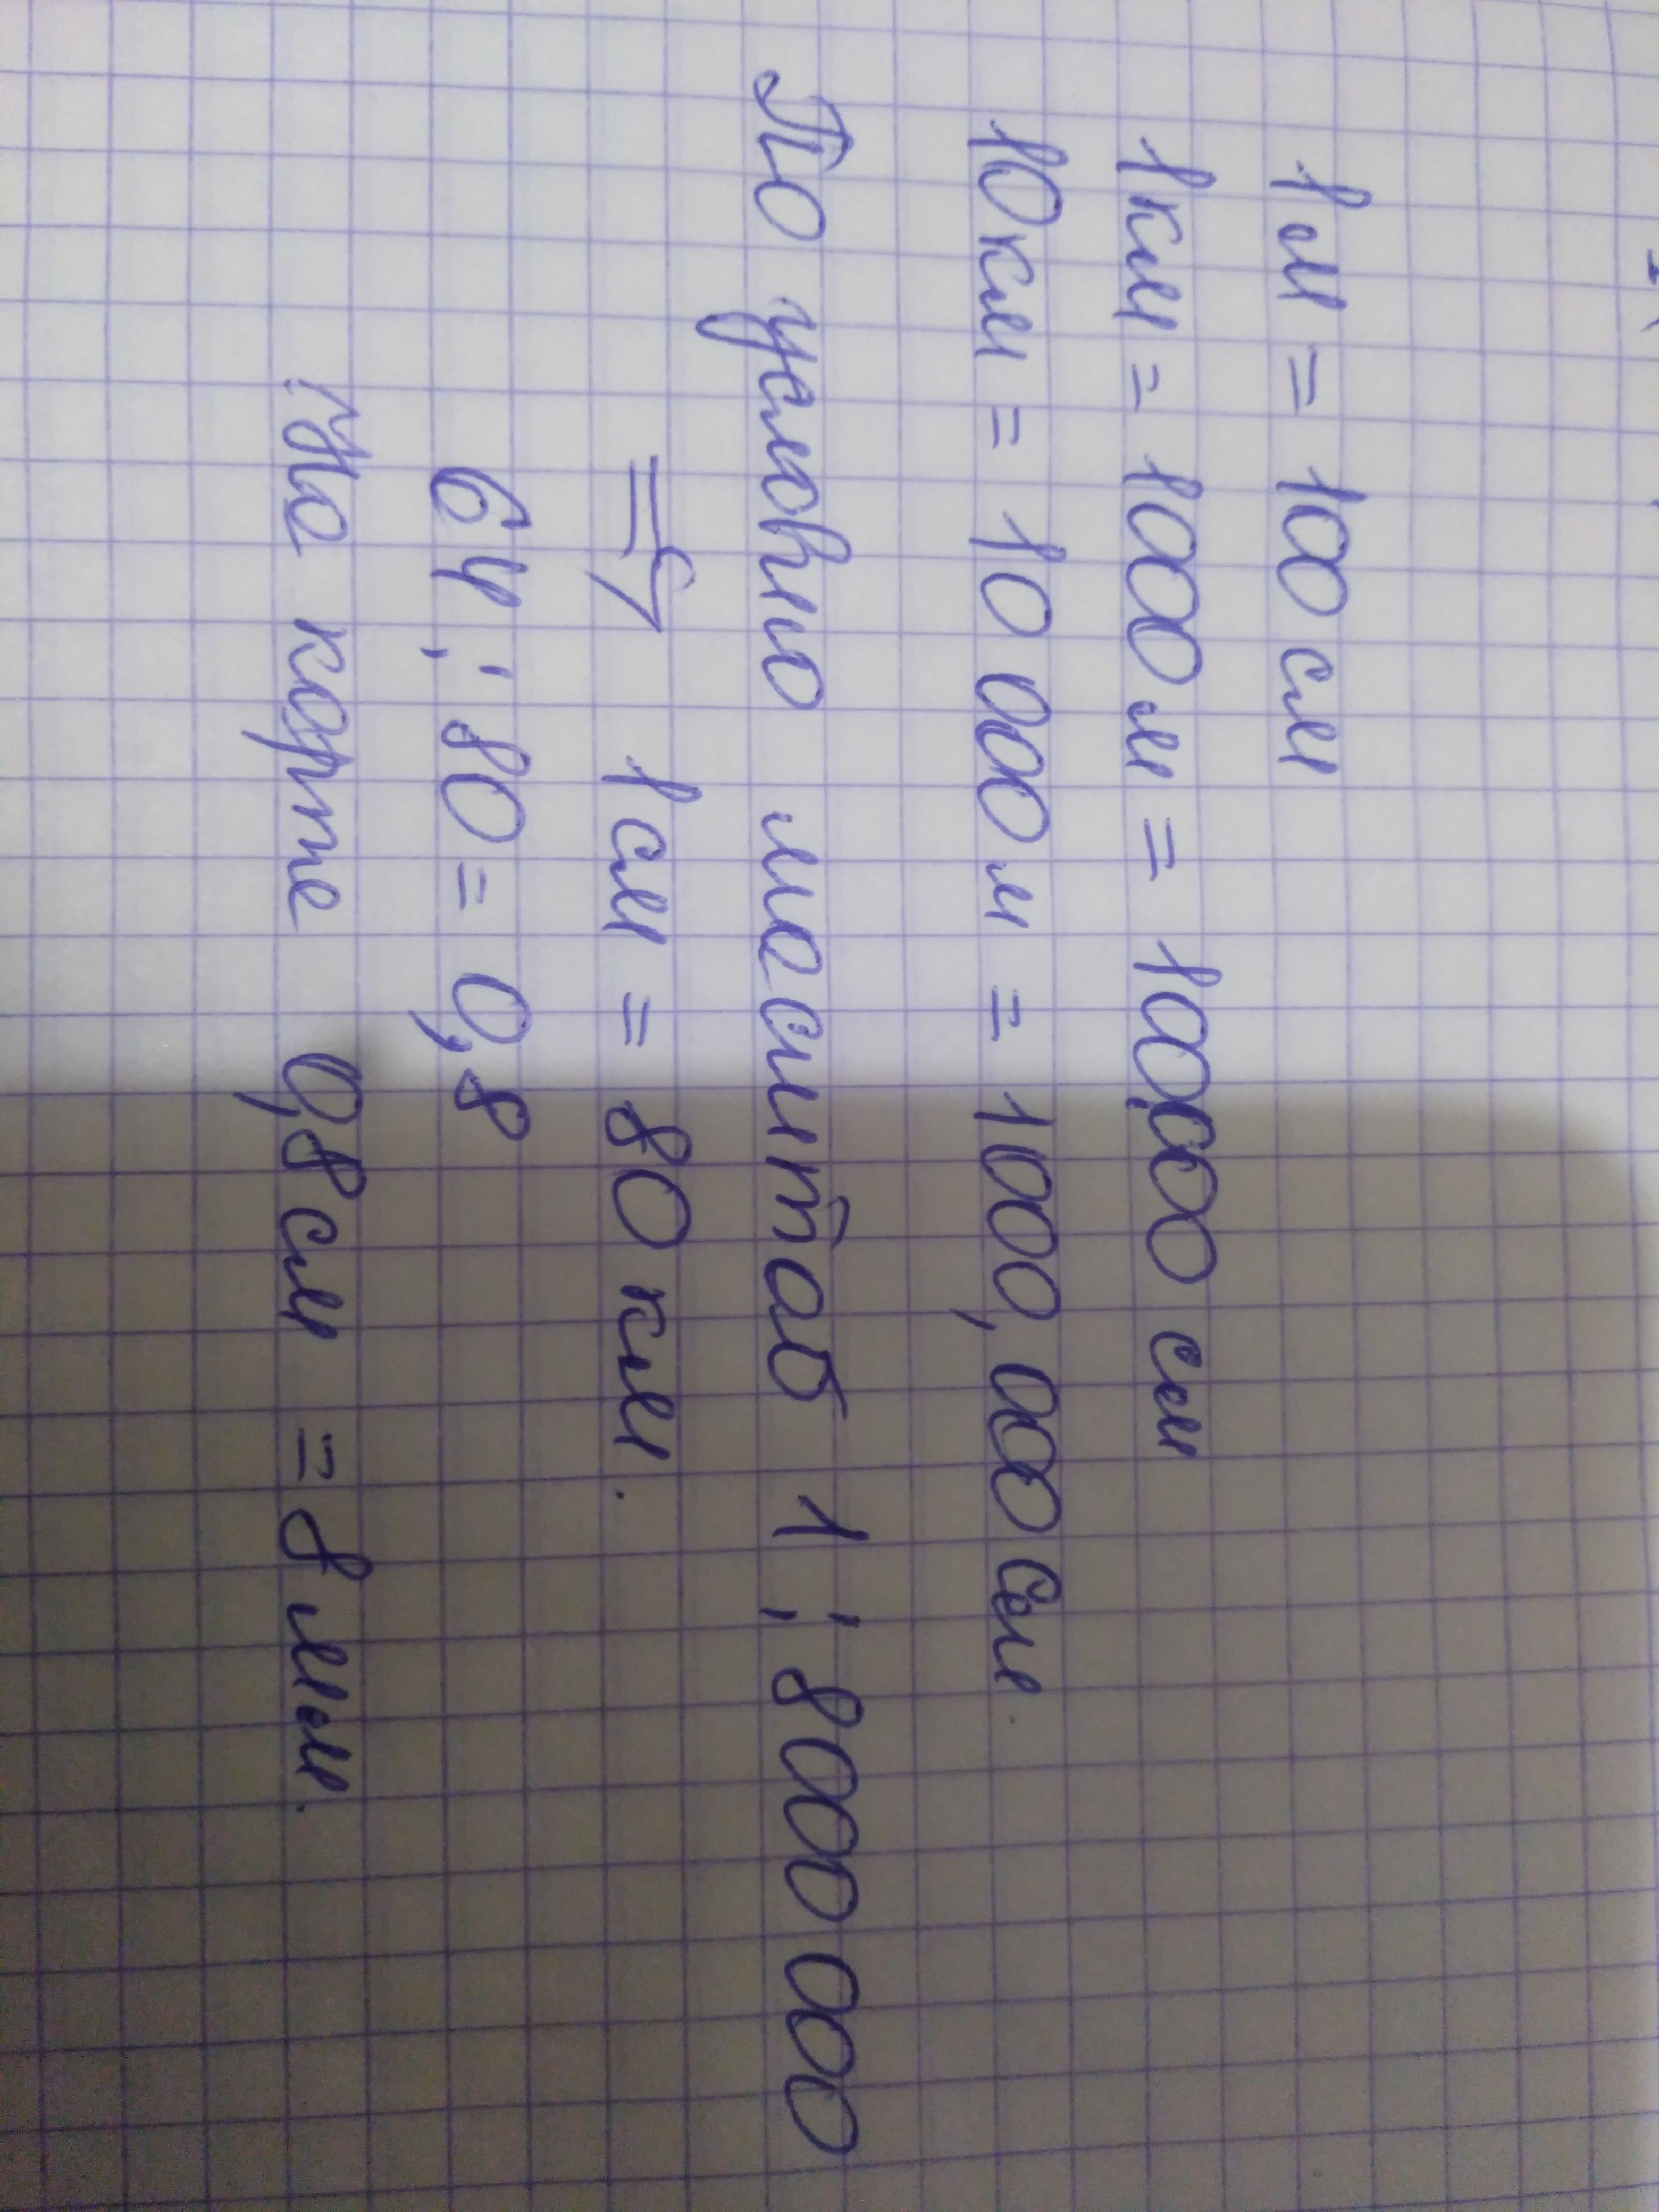 1м = 100 см
1км = 1000 м = 100000 см
10км = 10 000 м = 1000,000 см.
По условию масштаб 1 : 8000 000
=> 1 см = 80 км.
64 : 80 = 0,8
На карте 0,8 см = 8 мм.